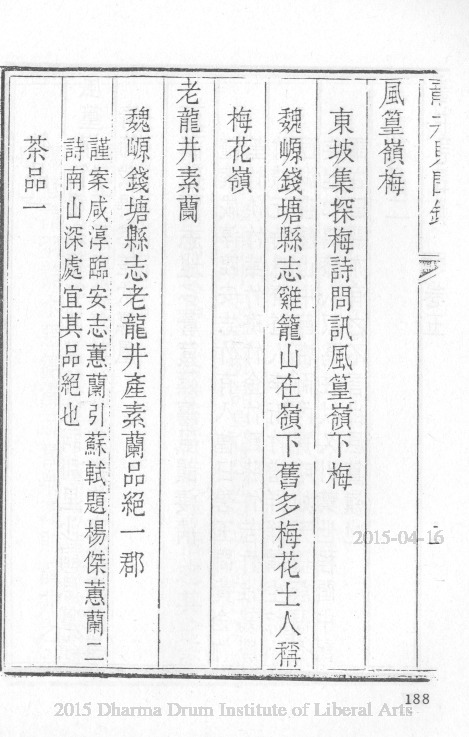 風篁嶺梅
東坡集探梅詩問訊風篁嶺下梅
魏㟲錢塘縣志雞籠山在嶺下舊多梅花土人稱
梅花嶺
老龍井素蘭
魏㟲錢塘縣志老龍井產素蘭品絕一郡
謹案咸淳臨安志蕙蘭引蘇軾題楊傑蕙蘭二
詩南山深處宜其品絕也
茶品一
2015-04-16
188
2015 Dharma Drum Institute of Liberal Arts